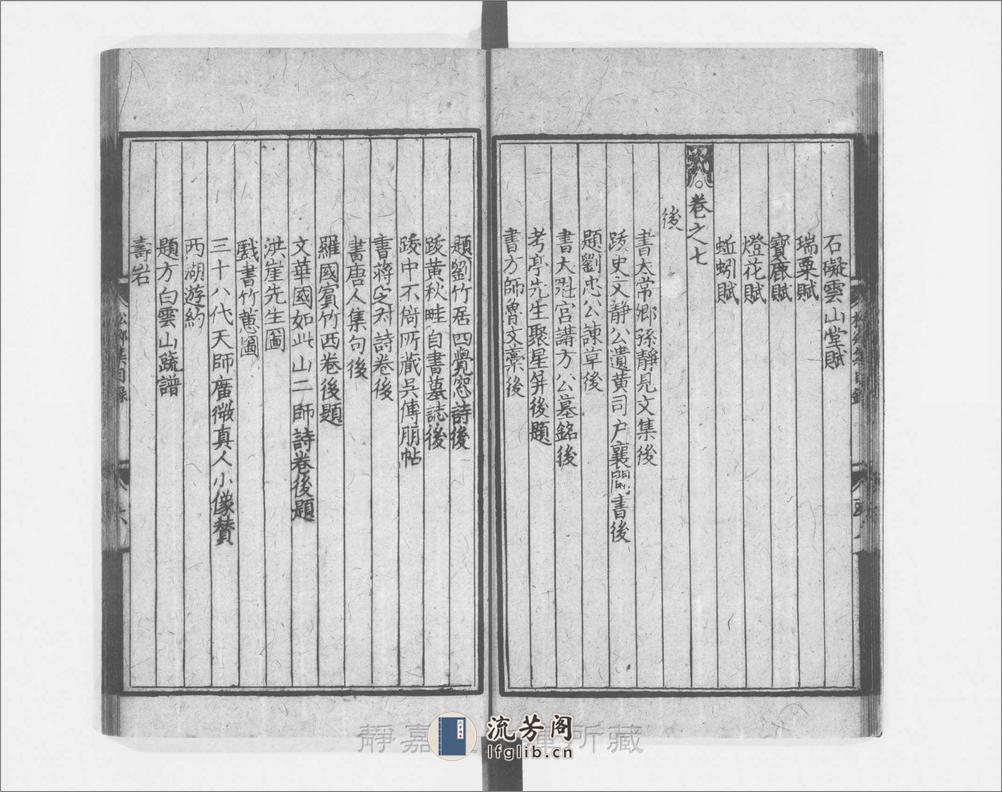 石礙雲山堂賦
瑞粟賦
寶鹿賦
燈花賦
蚯蚓賦
卷之七
後
書太常鄉孫靜見文集後
跋史文靜公遺黄司户襄閫書後
題劉忠公諫草後
書大䟽宫講方公墓銘後
考亭先生聚星屏後題
書方師魯文藁後
題劉竹居四覺窓詩後
跋黄秋畦自書墓誌後
跋中不倚所藏吴傅朋帖
書蔣定叔詩卷後
書唐人集句後
羅國賓竹西卷後題
文華國如此山二師詩卷後題
洪崖先生圖
戲書竹蕙圖
三十八代天師廣微真人小像賛
西湖遊約
題方白雲山䟽譜
壽岩
松鄉集目錄
六
靜嘉
所藏
流芳阁
lfglib.cn